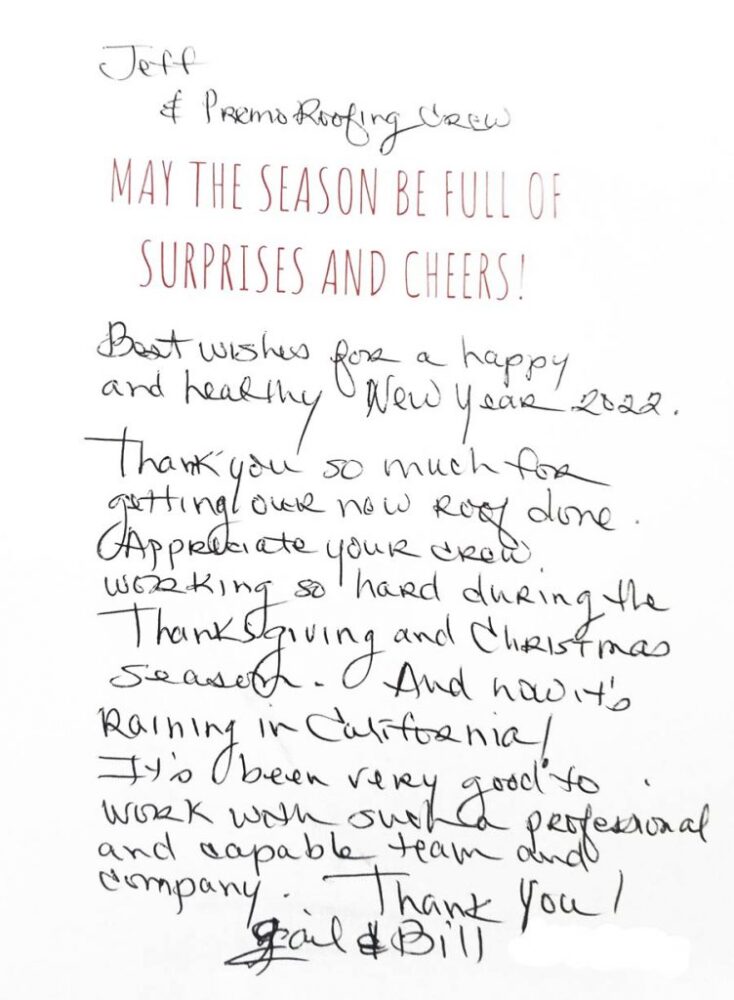 Jeff
& Premo Roofing Crew
MAY THE SEASON BE FULL OF
SURPRISES AND CHEERS!
Best wishes for a happy
and healthy New Year 2022.
Thank you so much for
getting our new roof done.
Appreciate your crew
working so hard during the
Thanksgiving and Christmas
season. And now it's
raining in California!
It's been very good to
work with such a professional
and capable team and
company. Thank You!
Gail & Bill